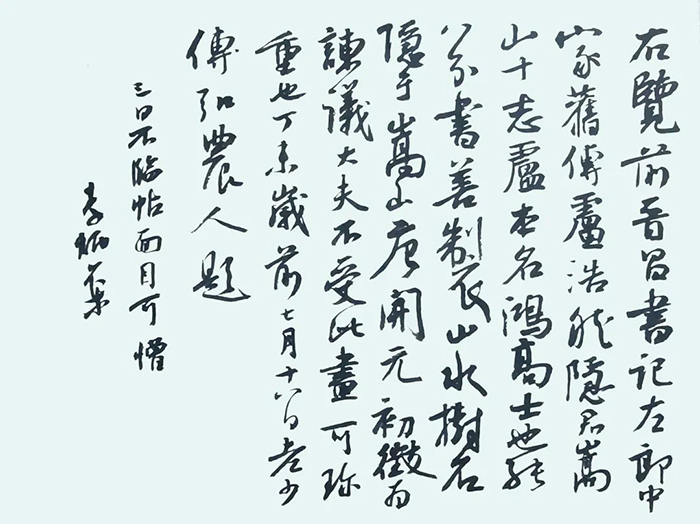 右覽前晉昌書記左郎中
家舊傳盧浩然隱居嵩
山十志盧本名鴻高士也能
八分書善製山水樹石
隱于嵩山唐開元初徵為
諫議大夫不受此畫可珍
重也丁未歲前七月十八日老少
傅弘農人題
三日不臨帖面目可憎